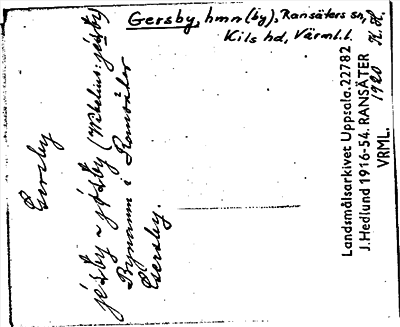 Gersby, hmn (by), Ransäters sn,
Kils hd, Värml.l.
Gersby
jéšby ~ jóšby (Wibelius: jéšby)
Bynamn i Ransäter
Gersby.
Landsmålsarkivet Uppsala. 22782
J. Hedlund 1916-54. RANSÄTER
VRML.
1920